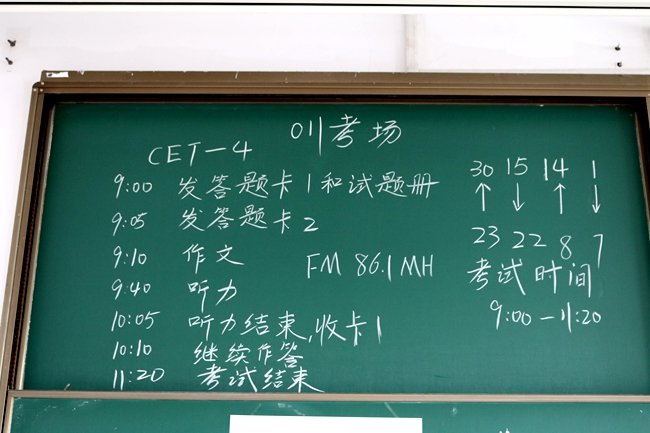 011考场
CET-4
9:00 发答题卡1和试题册
9:05 发答题卡2
9:10 作文
FM 86.1MH
9:40 听力
10:05 听力结束,收卡1
10:10 继续作答
11:20 考试结束
30 15 14 1
↑ ↓ ↑ ↓
23 22 8 7
考试时间
9:00-11:20